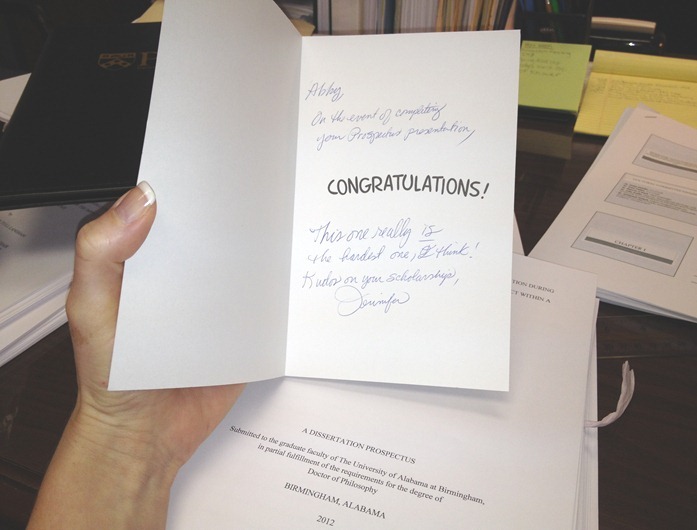 Abbey
On the event of completing
your Prospectus presentation,
CONGRATULATIONS!
This one really is
the hardest one, I think!
Kudos on your scholarship,
Jennifer
TION DURING
CT WITHIN A
CHAPTER I
A DISSERTATION PROSPECTUS
Submitted to the graduate faculty of The University of Alabama at Birmingham,
in partial fulfillment of the requirements for the degree of
Doctor of Philosophy
BIRMINGHAM, ALABAMA
2012